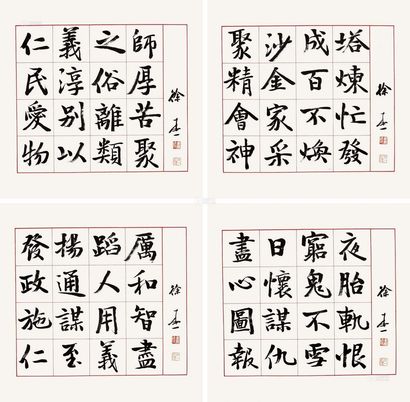 仁義之師
民淳俗厚
愛別離苦
物以類聚
徐
聚沙成塔
精金百煉
會家不忙
神采煥發
徐
發揚蹈厲
政通人和
施謀用智
仁至義盡
徐
盡日窮夜
心懷鬼胎
圖謀不軌
報仇雪恨
徐